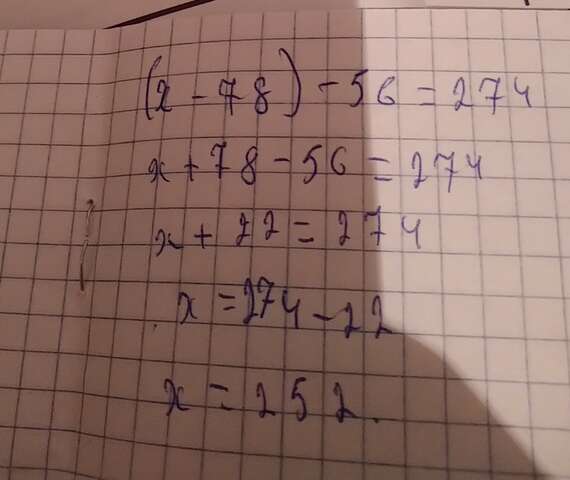 (x - 78) - 56 = 274
x + 78 - 56 = 274
x + 22 = 274
x = 274 - 22
x = 252.